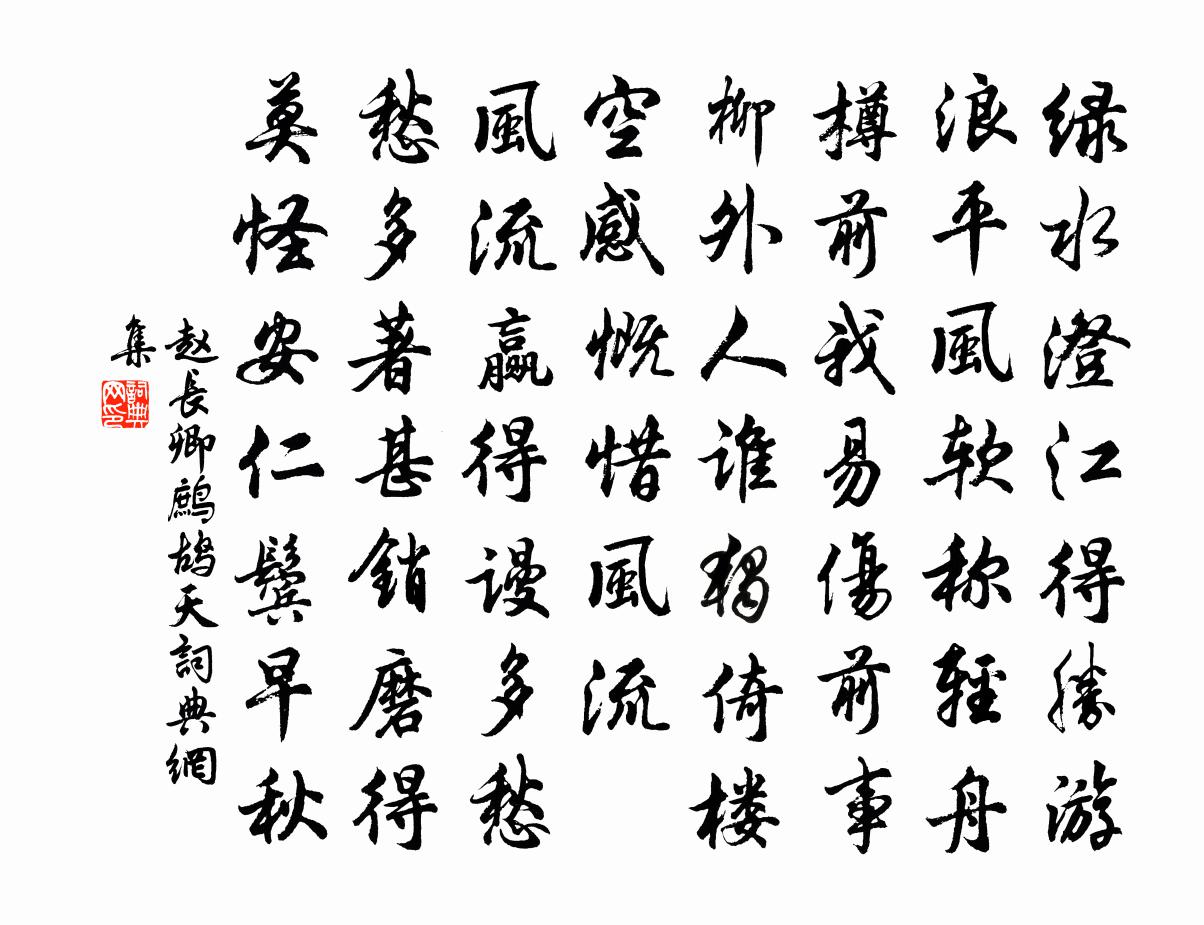 绿水澄江得胜游
浪平風软称輕舟
樽前我易傷前事
柳外人誰独倚楼
空感慨惜風流
風流贏得謾多愁
愁多著甚銷磨得
莫怪安仁鬓早秋
赵長卿鷓鴣天詞典網
集
詞典
网印